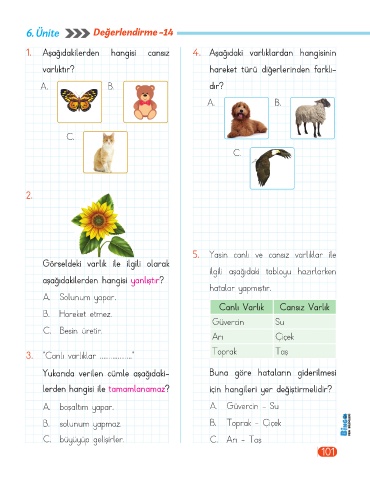 6. Ünite Değerlendirme -14
1. Aşağıdakilerden hangisi cansız
varlıktır?
A. B.
C.
2.
Görseldeki varlık ile ilgili olarak
aşağıdakilerden hangisi yanlıştır?
A. Solunum yapar.
B. Hareket etmez.
C. Besin üretir.
3. "Canlı varlıklar ................."
Yukarıda verilen cümle aşağıdaki-
lerden hangisi ile tamamlanamaz?
A. boşaltım yapar.
B. solunum yapmaz.
C. büyüyüp gelişirler.
4. Aşağıdaki varlıklardan hangisinin
hareket türü diğerlerinden farklı-
dır?
A. B.
C.
5. Yasin canlı ve cansız varlıklar ile
ilgili aşağıdaki tabloyu hazırlarken
hatalar yapmıştır.
Canlı Varlık Cansız Varlık
Güvercin Su
Arı Çiçek
Toprak Taş
Buna göre hataların giderilmesi
için hangileri yer değiştirmelidir?
A. Güvercin - Su
B. Toprak - Çiçek
C. Arı - Taş
101